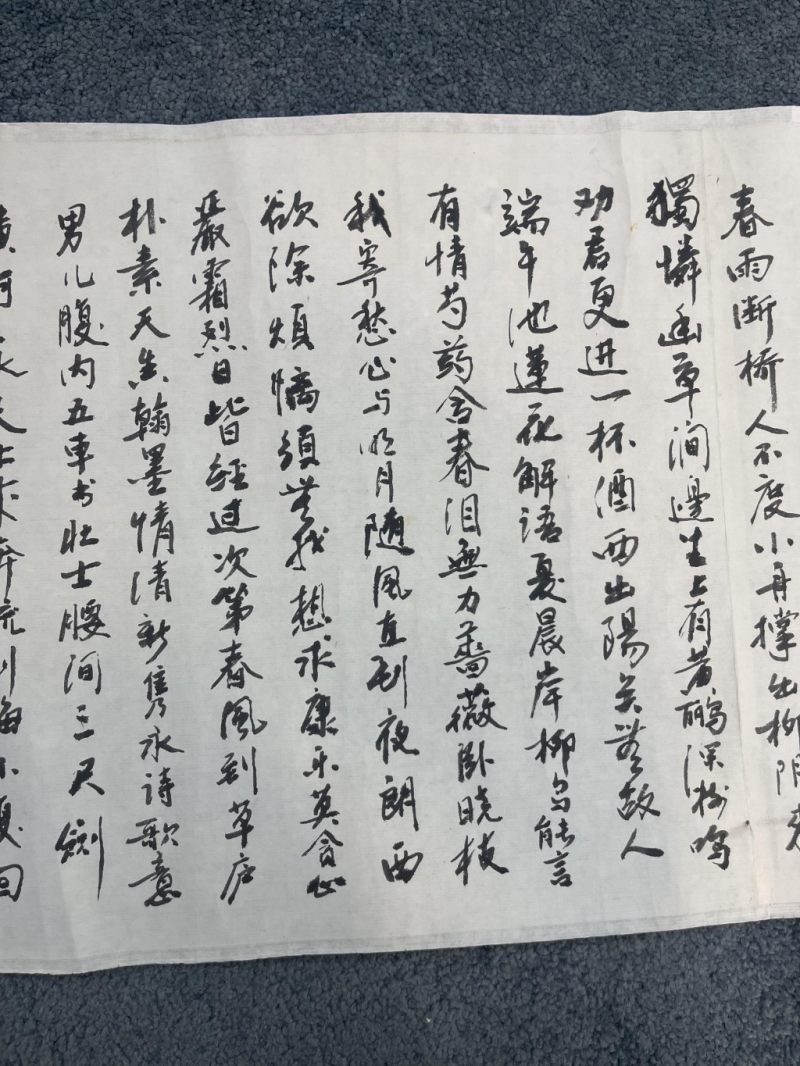 春雨断桥人不度小舟撑出柳阴来
獨憐幽草涧邊生上有黄鹂深树鸣
劝君更进一杯酒西出陽关無故人
端午池蓮花解语夏晨岸柳鸟能言
有情芍药含春泪無力蔷薇卧晓枝
我寄愁心与明月随风直到夜郎西
欲除烦恼须無我想求康乐莫贪心
嚴霜烈日皆经过次第春风到草庐
朴素天真翰墨情清新隽永诗歌意
男儿腹内五車书壮士腰间三尺劍
黄河之水天上来奔流到海不复回